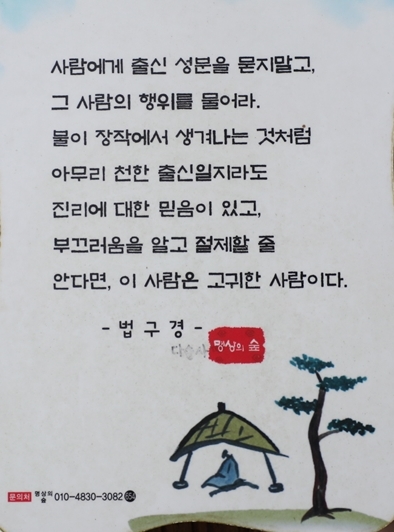 사람에게 출신 성분을 묻지말고,
그 사람의 행위를 물어라.
불이 장작에서 생겨나는 것처럼
아무리 천한 출신일지라도
진리에 대한 믿음이 있고,
부끄러움을 알고 절제할 줄
안다면, 이 사람은 고귀한 사람이다.
- 법 구 경 -
명상의 숲
문의처 명상의 숲 010-4830-3082